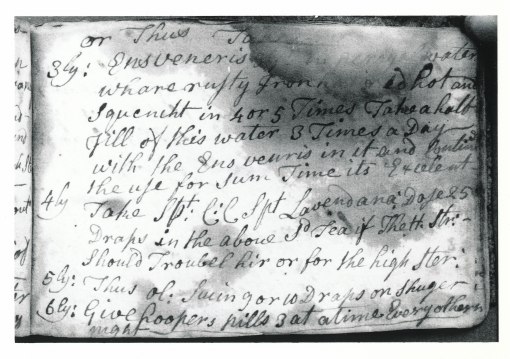 or Thus Ta
3ly: Ens veneris water
whare rusty Iron hot and
Squencht in 4 or 5 Times Take a half
Jill of this water 3 Times a Day
with the Ens veneris in it and
the use for Sum Time its Excelent
4ly Take Spt: C:C Spt Lavendana: Dose 25
Draps in the above Tea if Theth Stri-
Should Troubel hir or for the high ster:
5ly: Thus ol: Sucin 9 or 10 Draps on Shuger
6ly: Give hoopers pills 3 at a time Every other
night